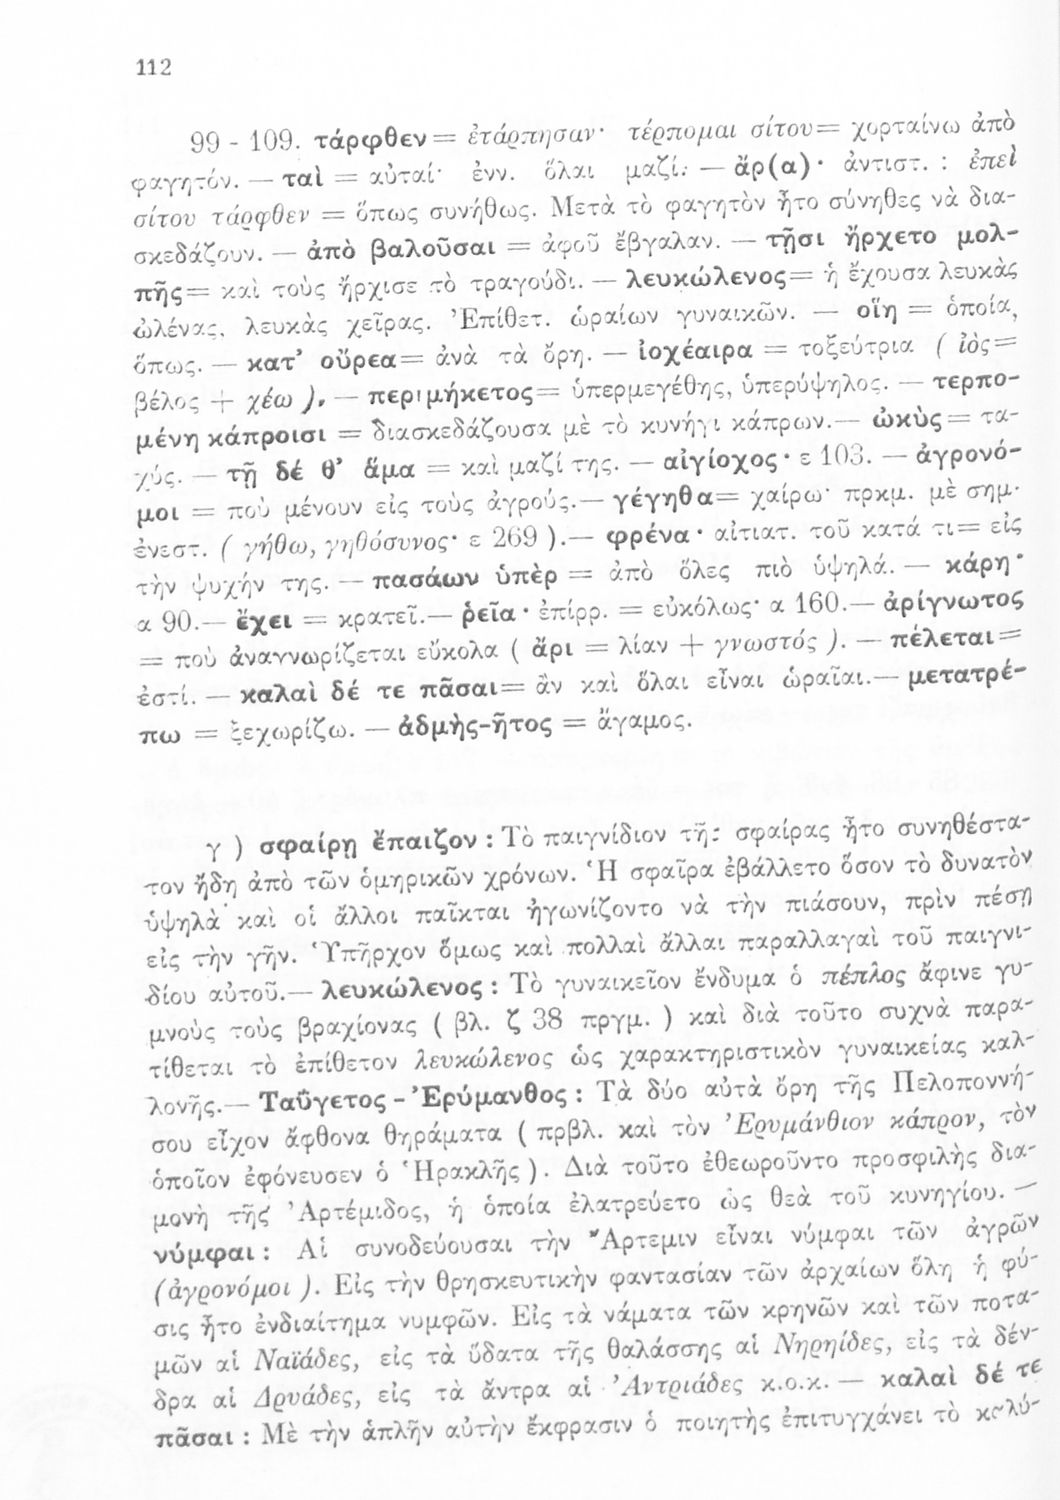 112
99 - 109. τάρφθεν = ἐτάρπησαν· τέρπομαι σίτου = χορταίνω ἀπὸ
φαγητόν. — ταὶ = αὐταί· ἐνν. ὅλαι μαζί. — ἄρ(α)· ἀντιστ. : ἐπεὶ
σίτου τάρφθεν = ὅπως συνήθως. Μετὰ τὸ φαγητὸν ἦτο σύνηθες νὰ δια-
σκεδάζουν. — ἀπὸ βαλοῦσαι = ἀφοῦ ἔβγαλαν. — τῇσι ἤρχετο μολ-
πῆς = καὶ τοὺς ἤρχισε τὸ τραγούδι. — λευκώλενος = ἡ ἔχουσα λευκὰς
ὠλένας, λευκὰς χεῖρας. Ἐπίθετ. ὡραίων γυναικῶν. — οἵη = ὁποία,
ὅπως. — κατ’ οὔρεα = ἀνὰ τὰ ὄρη. — ἰοχέαιρα = τοξεύτρια ( ἰὸς =
βέλος + χέω ). — περιμήκετος = ὑπερμεγέθης, ὑπερύψηλος. — τερπο-
μένη κάπροισι = διασκεδάζουσα μὲ τὸ κυνήγι κάπρων. — ὠκὺς = τα-
χύς. — τῇ δέ θ’ ἅμα = καὶ μαζί της. — αἰγίοχος· ε 103. — ἀγρονό-
μοι = ποὺ μένουν εἰς τοὺς ἀγρούς. — γέγηθα = χαίρω· πρκμ. μὲ σημ.
ἐνεστ. ( γήθω, γηθόσυνος· ε 269 ). — φρένα· αἰτιατ. τοῦ κατά τι = εἰς
τὴν ψυχήν της. — πασάων ὑπὲρ = ἀπὸ ὅλες πιὸ ὑψηλά. — κάρη·
α 90. — ἔχει = κρατεῖ. — ῥεῖα· ἐπίρρ. = εὐκόλως· α 160. — ἀρίγνωτος
= ποὺ ἀναγνωρίζεται εὔκολα ( ἄρι = λίαν + γνωστός ). — πέλεται =
ἐστί. — καλαὶ δέ τε πᾶσαι = ἂν καὶ ὅλαι εἶναι ὡραῖαι. — μετατρέ-
πω = ξεχωρίζω. — ἀδμὴς-ῆτος = ἄγαμος.
γ ) σφαίρῃ ἔπαιζον : Τὸ παιγνίδιον τῆς σφαίρας ἦτο συνηθέστα-
τον ἤδη ἀπὸ τῶν ὁμηρικῶν χρόνων. Ἡ σφαῖρα ἐβάλλετο ὅσον τὸ δυνατὸν
ὑψηλὰ καὶ οἱ ἄλλοι παῖκται ἠγωνίζοντο νὰ τὴν πιάσουν, πρὶν πέσῃ
εἰς τὴν γῆν. Ὑπῆρχον ὅμως καὶ πολλαὶ ἄλλαι παραλλαγαὶ τοῦ παιγνι-
δίου αὐτοῦ. — λευκώλενος : Τὸ γυναικεῖον ἔνδυμα ὁ πέπλος ἄφινε γυ-
μνοὺς τοὺς βραχίονας ( βλ. ζ 38 πργμ. ) καὶ διὰ τοῦτο συχνὰ παρα-
τίθεται τὸ ἐπίθετον λευκώλενος ὡς χαρακτηριστικὸν γυναικείας καλ-
λονῆς. — Ταΰγετος - Ἐρύμανθος : Τὰ δύο αὐτὰ ὄρη τῆς Πελοποννή-
σου εἶχον ἄφθονα θηράματα ( πρβλ. καὶ τὸν Ἐρυμάνθιον κάπρον, τὸν
ὁποῖον ἐφόνευσεν ὁ Ἡρακλῆς ). Διὰ τοῦτο ἐθεωροῦντο προσφιλὴς δια-
μονὴ τῆς Ἀρτέμιδος, ἡ ὁποία ἐλατρεύετο ὡς θεὰ τοῦ κυνηγίου. —
νύμφαι : Αἱ συνοδεύουσαι τὴν Ἄρτεμιν εἶναι νύμφαι τῶν ἀγρῶν
(ἀγρονόμοι ). Εἰς τὴν θρησκευτικὴν φαντασίαν τῶν ἀρχαίων ὅλη ἡ φύ-
σις ἦτο ἐνδιαίτημα νυμφῶν. Εἰς τὰ νάματα τῶν κρηνῶν καὶ τῶν ποτα-
μῶν αἱ Ναϊάδες, εἰς τὰ ὕδατα τῆς θαλάσσης αἱ Νηρηίδες, εἰς τὰ δέν-
δρα αἱ Δρυάδες, εἰς τὰ ἄντρα αἱ Ἀντριάδες κ.ο.κ. — καλαὶ δέ τε
πᾶσαι : Μὲ τὴν ἁπλῆν αὐτὴν ἔκφρασιν ὁ ποιητὴς ἐπιτυγχάνει τὸ καλύ-